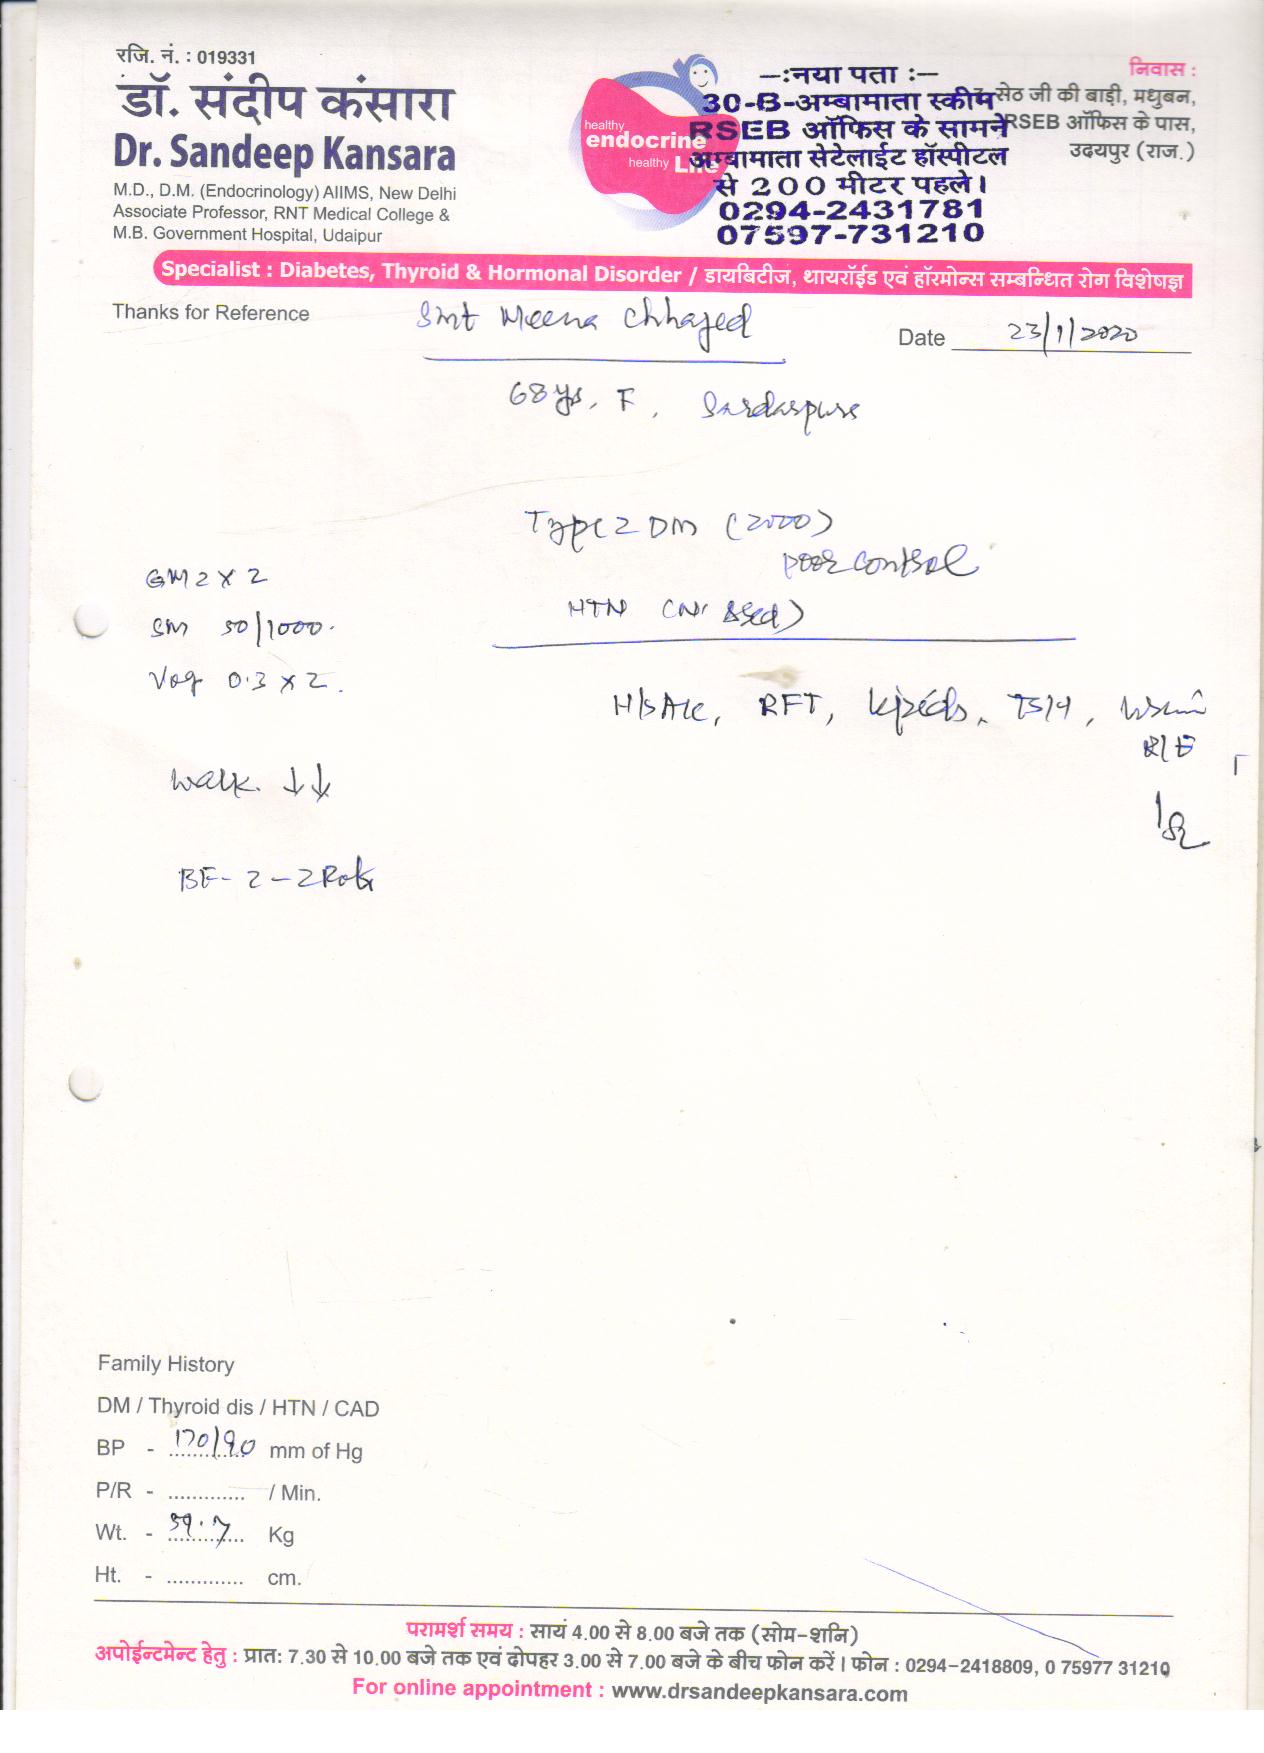 रजि. नं. : 019331
डॉ. संदीप कंसारा
Dr. Sandeep Kansara
M.D., D.M. (Endocrinology) AIIMS, New Delhi
Associate Professor, RNT Medical College &
M.B. Government Hospital, Udaipur
healthy
endocrine
healthy Life
–:नया पता :–
30-B-अम्बामाता स्कीम
RSEB ऑफिस के सामने
अम्बामाता सेटेलाईट हॉस्पीटल
से 200 मीटर पहले।
0294-2431781
07597-731210
निवास :
सेठ जी की बाड़ी, मधुबन,
RSEB ऑफिस के पास,
उदयपुर (राज.)
Specialist : Diabetes, Thyroid & Hormonal Disorder / डायबिटीज, थायरॉईड एवं हॉरमोन्स सम्बन्धित रोग विशेषज्ञ
Thanks for Reference
Smt Meena Chhajed
Date 23/1/2020
68 ys, F, Sardarpura
Type 2 DM (2000)
poor control
HTN
GM 2 x 2
SM 50/1000.
Vog 0.3 x 2.
HbA1c, RFT, Lipids, TSH, Urine
R/E
Walk. ↓↓
BF - 2 - 2 Roti
Family History
DM / Thyroid dis / HTN / CAD
BP - 170/90 mm of Hg
P/R - ............. / Min.
Wt. - 59.7 Kg
Ht. - ............. cm.
परामर्श समय : सायं 4.00 से 8.00 बजे तक (सोम-शनि)
अपोईन्टमेन्ट हेतु : प्रात: 7.30 से 10.00 बजे तक एवं दोपहर 3.00 से 7.00 बजे के बीच फोन करें। फोन : 0294-2418809, 0 75977 31210
For online appointment : www.drsandeepkansara.com